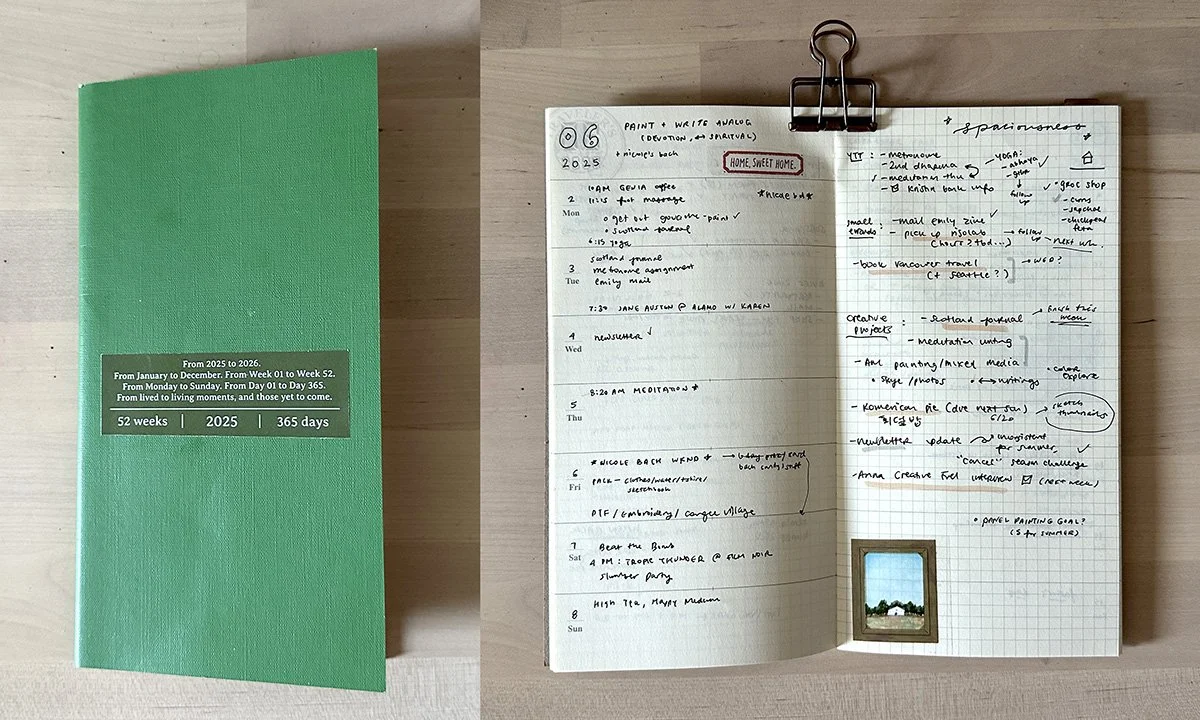 From 2025 to 2026.
From January to December. From Week 01 to Week 52.
From Monday to Sunday. From Day 01 to Day 365.
From lived to living moments, and those yet to come.
52 weeks | 2025 | 365 days
06
2025
PAINT + WRITE ANALOG
(DEVOTION, ↔ SPIRITUAL)
+ nicole's bach
HOME, SWEET HOME.
2
Mon
10AM GENIA coffee
11:15 foot massage
*nicole bd*
○ get out gouache - paint ✓
○ scotland journal
6:15 yoga
3
Tue
scotland journal
metronome assignment
emily mail
7:30 JANE AUSTEN @ ALAMO W/ KAREN
4
Wed
newsletter ✓
5
Thu
8:20 AM MEDITATION *
6
Fri
* NICOLE BACH WKND *
PACK - clothes/water/tshirt/
sketchbook
PTF / Embroidery / congee village
7
Sat
Beat the Bomb
4 PM: TROPIC THUNDER @ FILM NOIR
slumber party
8
Sun
High Tea, Happy Medium
* spaciousness *
YTT : - metronome
- 2nd dharma
- meditation thu
- ✉ Kristin bank info
→ YOGA:
- abhaya ✓
↓
follow
up
✓ • groc shop
- chickpeas
feta
small
errands : - mail emily zine ✓
- pick up risolab → follow up
(hours? tbd...)
- next wk.
- book vancouver travel → WED?
(+ seattle?)
creative
projects : - scotland journal → finish this
week
- meditation writing
- AM painting/mixed media
• skye/photos • ↔ writings
• color
explore
- Komerican pie (due next sun)
6/20
→ sketch
thumbnails
- newsletter update → inconsistent
for summer, ✓
"cancel" steam challenge
- Anna Creative Fuel interview ☑ (next week)
○ PANEL PAINTING GOAL?
(5 for SUMMER)